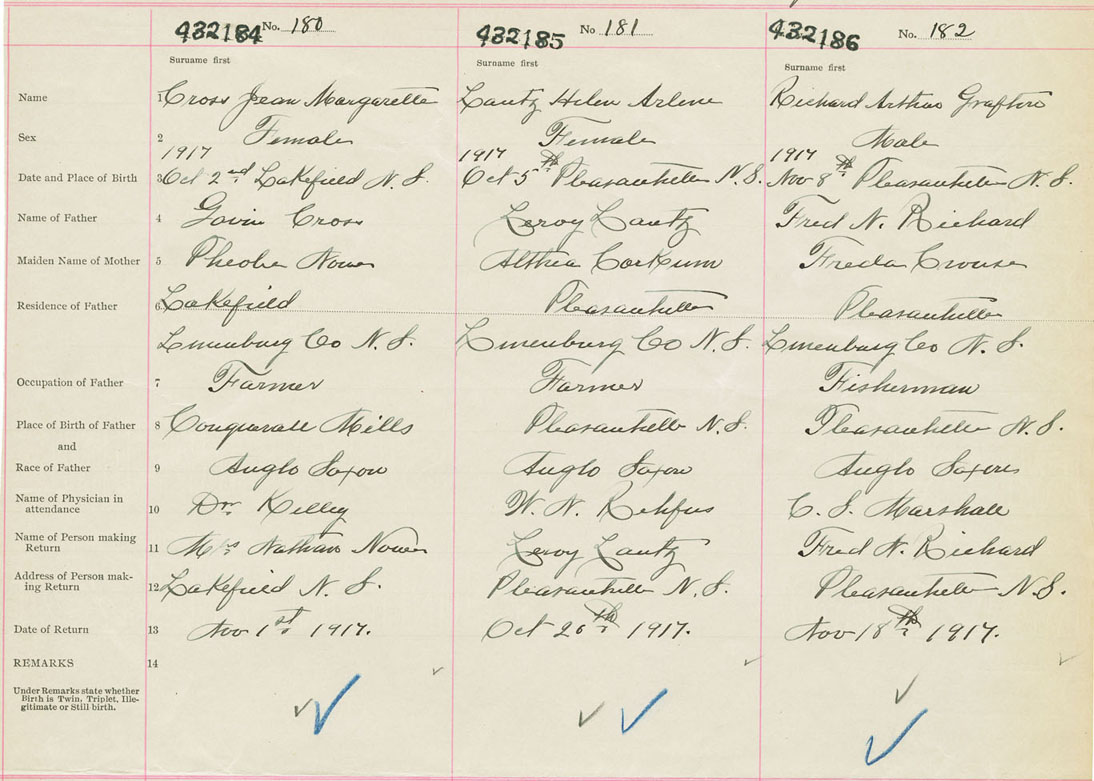 432184 No. 180 432185 No 181 432186 No. 182
Surname first Surname first Surname first
Name 1 Cross Jean Margarette Lantz Helen Arlene Richard Arthur Grafton
Sex 2 Female Female Male
1917 1917 1917
Date and Place of Birth 3 Oct 2nd Lakefield N. S. Oct 5th Pleasantville N.S. Nov 8th Pleasantville N. S.
Name of Father 4 Gavin Cross Leroy Lantz Fred N. Richard
Maiden Name of Mother 5 Pheobe Nowe Althea Corkum Freda Crouse
Residence of Father 6 Lakefield Pleasantville Pleasantville
Lunenburg Co N. S. Lunenburg Co N. S. Lunenburg Co N. S.
Occupation of Father 7 Farmer Farmer Fisherman
Place of Birth of Father 8 Conquerall Mills Pleasantville N. S. Pleasantville N. S.
and
Race of Father 9 Anglo Saxon Anglo Saxon Anglo Saxon
Name of Physician in
attendance 10 Dr. Kelley W. N. Rehfus C. S. Marshall
Name of Person making
Return 11 Mrs Nathan Nowe Leroy Lantz Fred N. Richard
Address of Person mak-
ing Return 12 Lakefield N. S. Pleasantville N. S. Pleasantville N.S.
Date of Return 13 Nov 1st 1917. Oct 26th 1917. Nov 18th 1917.
REMARKS 14
Under Remarks state whether
Birth is Twin, Triplet, Ille-
gitimate or Still birth.